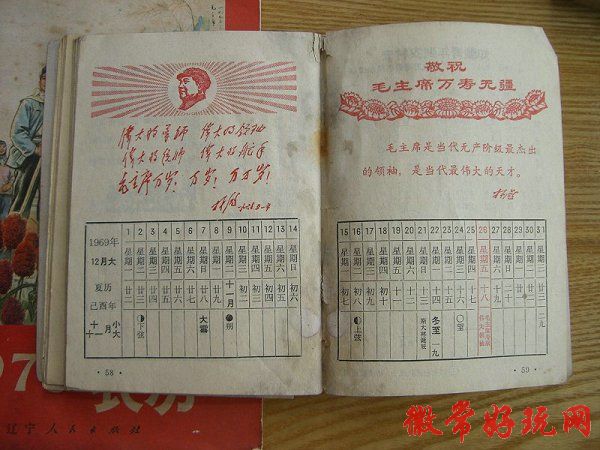 伟大的导师 伟大的领袖
伟大的统帅 伟大的舵手
毛主席万岁！万岁！万万岁！
林彪
1969年 12月大 1 2 3 4 5 6 7 8 9 10 11 12 13 14
星期一 星期二 星期三 星期四 星期五 星期六 星期日 星期一 星期二 星期三 星期四 星期五 星期六 星期日
夏历 己酉年 廿二 廿三 廿四 廿五 廿六 廿七 廿八 廿九 十一月 初二 初三 初四 初五 初六
十小 十一大 月 下弦 大雪 朔
· 58 ·
敬祝
毛主席万寿无疆
毛主席是当代无产阶级最杰出
的领袖，是当代最伟大的天才。
林彪
15 16 17 18 19 20 21 22 23 24 25 26 27 28 29 30 31
星期一 星期二 星期三 星期四 星期五 星期六 星期日 星期一 星期二 星期三 星期四 星期五 星期六 星期日 星期一 星期二 星期三
初七 初八 初九 初十 十一 十二 十三 十四 十五 十六 十七 十八 十九 二十 廿一 廿二 廿三
上弦 冬至 一九 望 二九
· 59 ·
197
农历
辽宁人民出版社
徽常好玩网